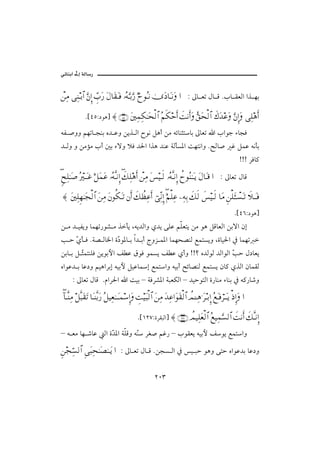 رسالة إلى ابنتي
بهذا العقاب. قال تعالى : ﴿ وَنَادَىٰ نُوحٌ رَّبَّهُ فَقَالَ رَبِّ إِنَّ ابْنِي مِنْ
أَهْلِي وَإِنَّ وَعْدَكَ الْحَقُّ وَأَنتَ أَحْكَمُ الْحَاكِمِينَ ﴾ [هود:٤٥].
فجاء جواب الله تعالى باستثنائه من أهل نوح الذين وعده بنجاتهم ووصفه
بأنه عمل غير صالح. وانتهت المسألة عند هذا الحد فلا ولاء بين أب مؤمن وولد
كافر !!!
قال تعالى : ﴿ قَالَ يَا نُوحُ إِنَّهُ لَيْسَ مِنْ أَهْلِكَ إِنَّهُ عَمَلٌ غَيْرُ صَالِحٍ
فَلَا تَسْأَلْنِ مَا لَيْسَ لَكَ بِهِ عِلْمٌ إِنِّي أَعِظُكَ أَن تَكُونَ مِنَ الْجَاهِلِينَ ﴾
[هود:٤٦].
إن الابن العاقل هو من يتعلّم على يدي والديه، يأخذ مشورتهما ويفيد من
خبرتهما في الحياة، ويستمع لنصحهما الممزوج أبداً بالمودّة الخالصة. فأيّ حب
يعادل حبّ الوالد لولده ؟!! وأي عطف يسمو فوق عطف الأبوين فلنتمثّل بابن
لقمان الذي كان يستمع لنصائح أبيه واستمع إسماعيل لأبيه إبراهيم ودعا بدعواه
وشاركه في بناء منارة التوحيد – الكعبة المشرفة – بيت الله الحرام. قال تعالى :
﴿ وَإِذْ يَرْفَعُ إِبْرَاهِيمُ الْقَوَاعِدَ مِنَ الْبَيْتِ وَإِسْمَاعِيلُ رَبَّنَا تَقَبَّلْ مِنَّا
إِنَّكَ أَنتَ السَّمِيعُ الْعَلِيمُ ﴾ [البقرة:١٢٧].
واستمع يوسف لأبيه يعقوب – رغم صغر سنّه وقلّة المدّة التي عاشها معه –
ودعا بدعواه حتى وهو حبيس في السجن. قال تعالى : ﴿ يَا صَاحِبَيِ السِّجْنِ
٢٠٣